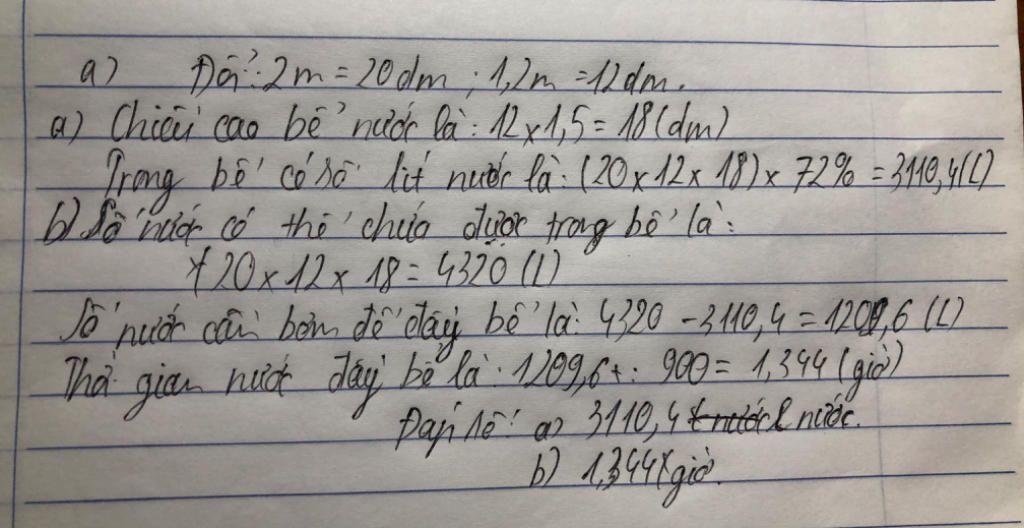 a) Đổi: 2m = 20dm ; 1,2m = 12dm.
a) Chiều cao bể nước là: 12 x 1,5 = 18 (dm)
Trong bể có số lít nước là: (20 x 12 x 18) x 72% = 3110,4 (L)
b) Số nước có thể chứa được trong bể là:
20 x 12 x 18 = 4320 (L)
Số nước cần bơm để đầy bể là: 4320 - 3110,4 = 1209,6 (L)
Thời gian nước đầy bể là: 1209,6 : 900 = 1,344 (giờ)
Đáp số: a) 3110,4 l nước.
b) 1,344 giờ.